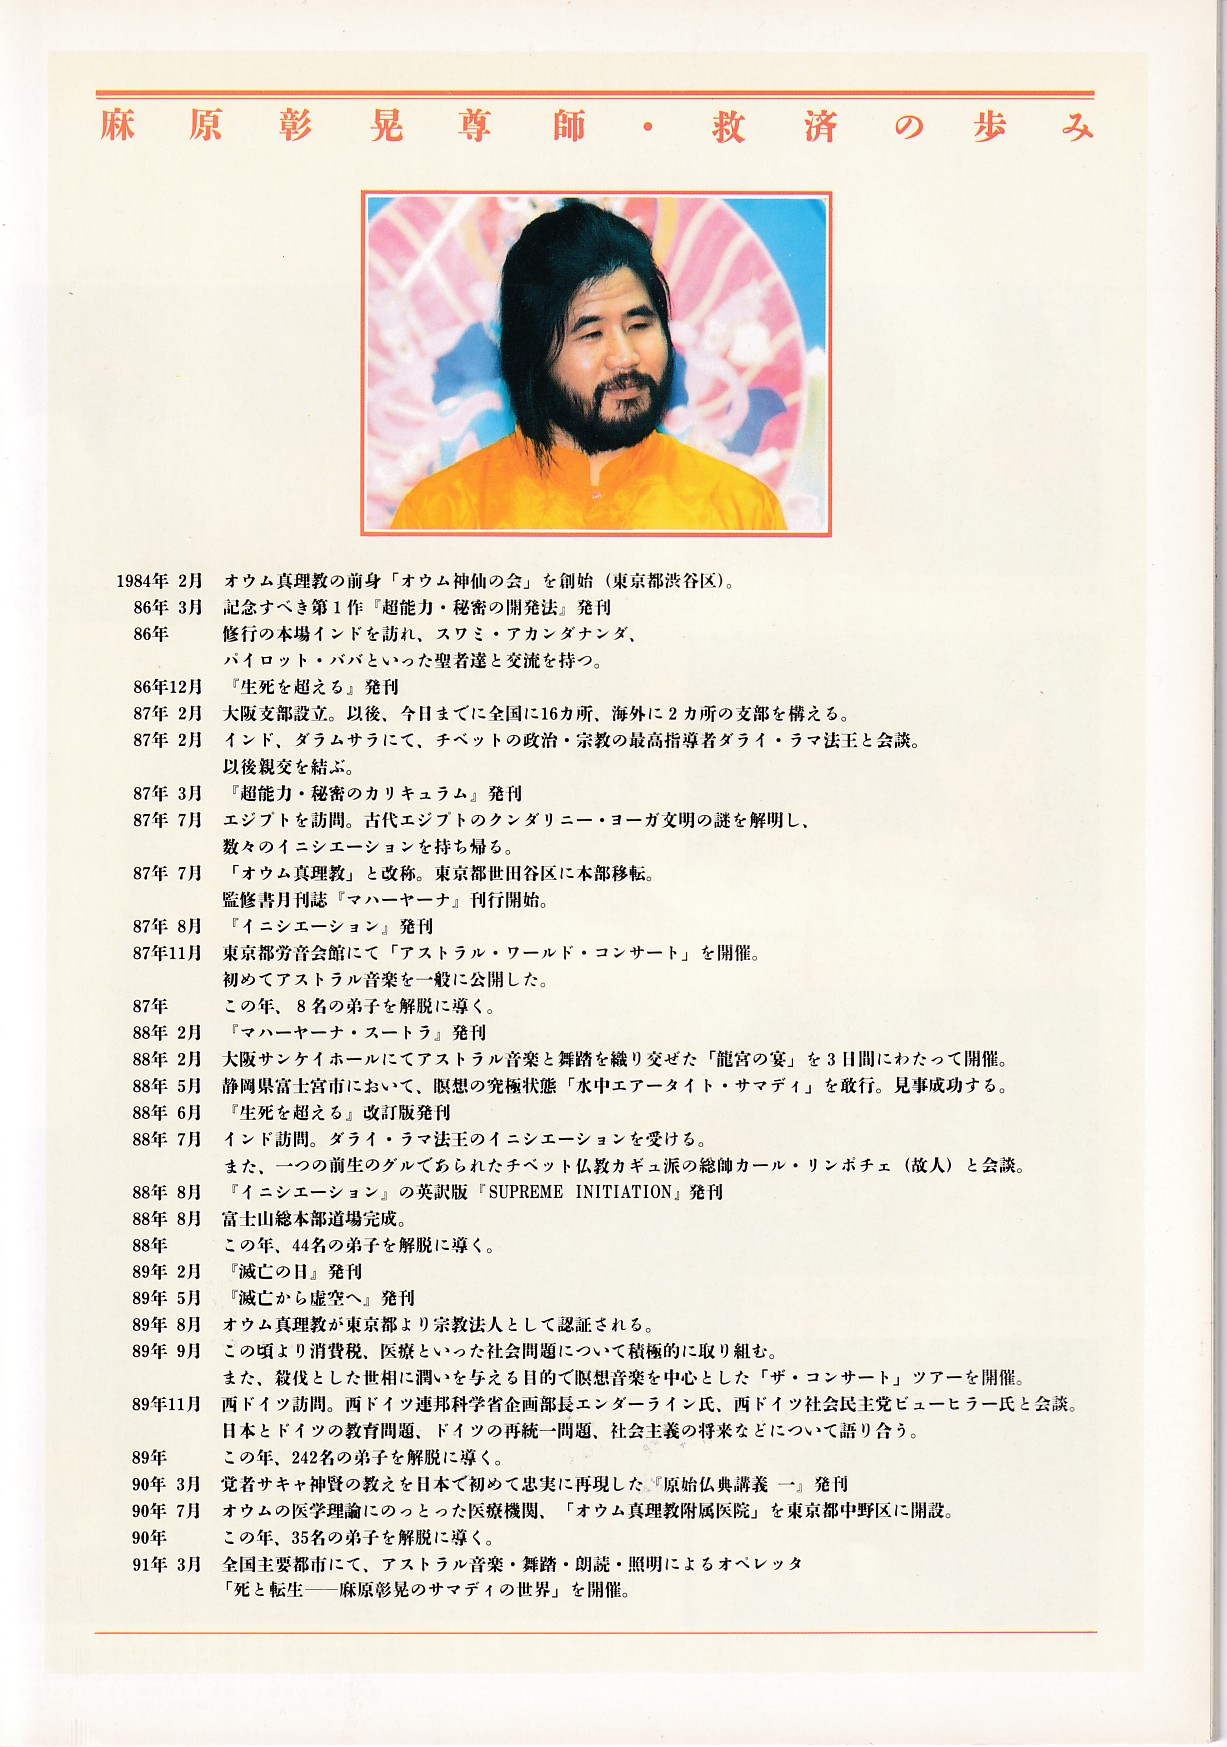 麻原彰晃尊師・救済の歩み
1984年 2月 オウム真理教の前身「オウム神仙の会」を創始（東京都渋谷区）。
86年 3月 記念すべき第1作『超能力・秘密の開発法』発刊
86年 修行の本場インドを訪れ、スワミ・アカンダナンダ、
パイロット・ババといった聖者達と交流を持つ。
86年12月 『生死を超える』発刊
87年 2月 大阪支部設立。以後、今日までに全国に16カ所、海外に2カ所の支部を構える。
87年 2月 インド、ダラムサラにて、チベットの政治・宗教の最高指導者ダライ・ラマ法王と会談。
以後親交を結ぶ。
87年 3月 『超能力・秘密のカリキュラム』発刊
87年 7月 エジプトを訪問。古代エジプトのクンダリニー・ヨーガ文明の謎を解明し、
数々のイニシエーションを持ち帰る。
87年 7月 「オウム真理教」と改称。東京都世田谷区に本部移転。
監修書月刊誌『マハーヤーナ』刊行開始。
87年 8月 『イニシエーション』発刊
87年11月 東京都労音会館にて「アストラル・ワールド・コンサート」を開催。
初めてアストラル音楽を一般に公開した。
87年 この年、8名の弟子を解脱に導く。
88年 2月 『マハーヤーナ・スートラ』発刊
88年 2月 大阪サンケイホールにてアストラル音楽と舞踏を織り交ぜた「龍宮の宴」を3日間にわたって開催。
88年 5月 静岡県富士宮市において、瞑想の究極状態「水中エアータイト・サマディ」を敢行。見事成功する。
88年 6月 『生死を超える』改訂版発刊
88年 7月 インド訪問。ダライ・ラマ法王のイニシエーションを受ける。
また、一つの前生のグルであられたチベット仏教カギュ派の総師カール・リンポチェ（故人）と会談。
88年 8月 『イニシエーション』の英訳版『SUPREME INITIATION』発刊
88年 8月 富士山総本部道場完成。
88年 この年、44名の弟子を解脱に導く。
89年 2月 『滅亡の日』発刊
89年 5月 『滅亡から虚空へ』発刊
89年 8月 オウム真理教が東京都より宗教法人として認証される。
89年 9月 この頃より消費税、医療といった社会問題について積極的に取り組む。
また、殺伐とした世相に潤いを与える目的で瞑想音楽を中心とした「ザ・コンサート」ツアーを開催。
89年11月 西ドイツ訪問。西ドイツ連邦科学省企画部長エンダーライン氏、西ドイツ社会民主党ビューヒラー氏と会談。
日本とドイツの教育問題、ドイツの再統一問題、社会主義の将来などについて語り合う。
89年 この年、242名の弟子を解脱に導く。
90年 3月 覚者サキャ神賢の教えを日本で初めて忠実に再現した『原始仏典講義 一』発刊
90年 7月 オウムの医学理論にのっとった医療機関、「オウム真理教附属医院」を東京都中野区に開設。
90年 この年、35名の弟子を解脱に導く。
91年 3月 全国主要都市にて、アストラル音楽・舞踏・朗読・照明によるオペレッタ
「死と転生──麻原彰晃のサマディの世界」を開催。